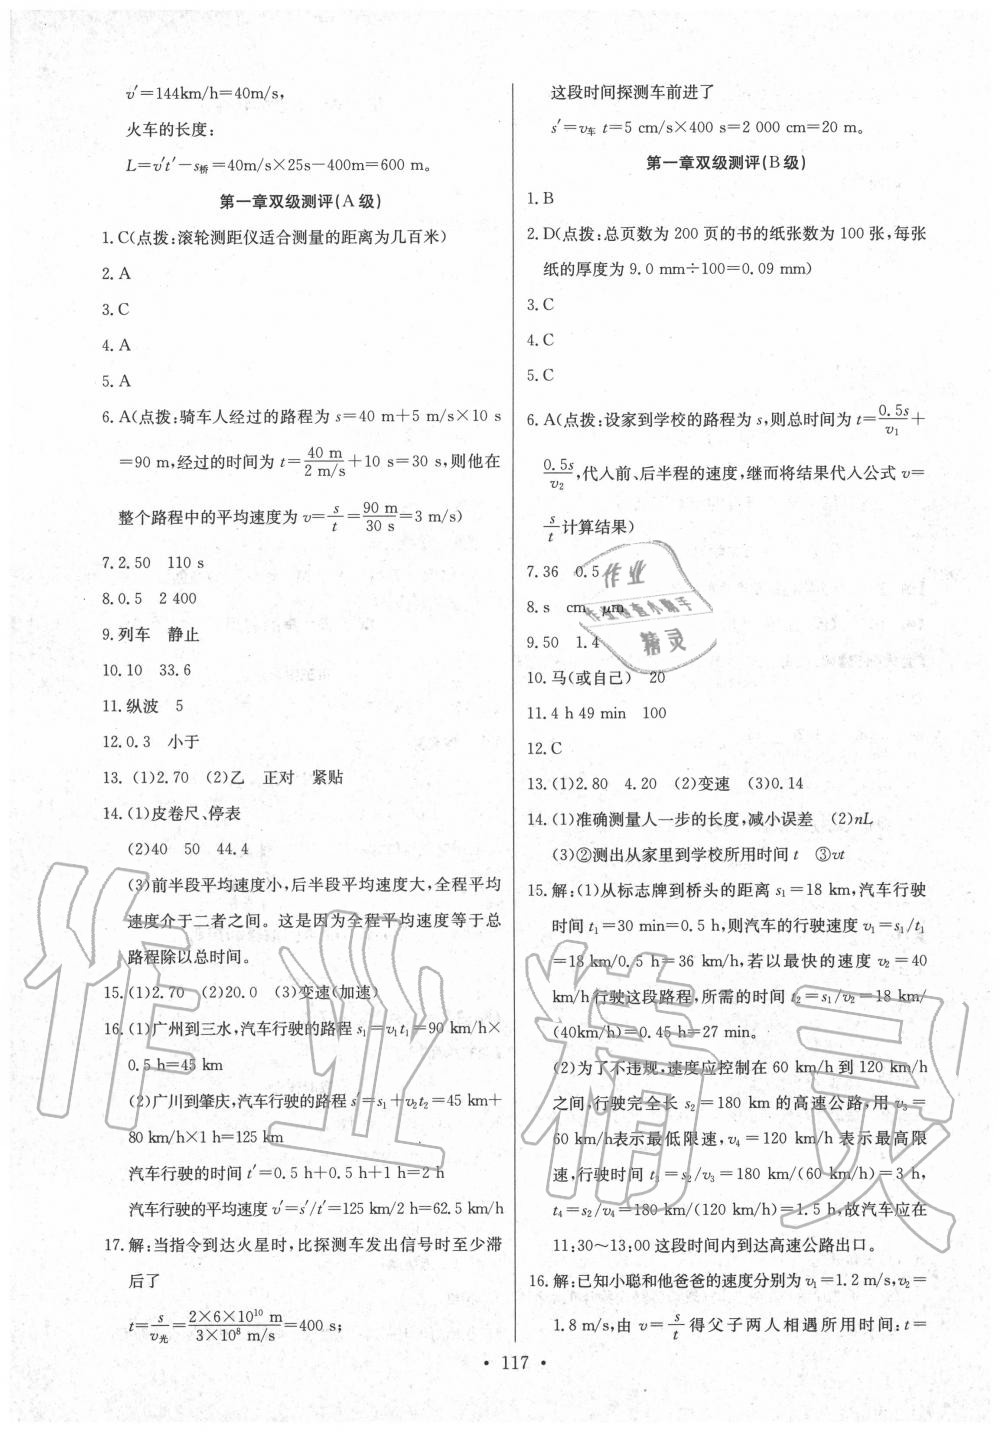 v′=144km/h=40m/s,
火车的长度:
L=v′t′-s桥=40m/s×25s-400m=600 m。
第一章双级测评(A级)
1.C(点拨:滚轮测距仪适合测量的距离为几百米)
2.A
3.C
4.A
5.A
6.A(点拨:骑车人经过的路程为 s=40 m+5 m/s×10 s
=90 m,经过的时间为 t=40 m/2 m/s+10 s=30 s,则他在
整个路程中的平均速度为 v=s/t=90 m/30 s=3 m/s)
7.2.50 110 s
8.0.5 2 400
9.列车 静止
10.10 33.6
11.纵波 5
12.0.3 小于
13.(1)2.70 (2)乙 正对 紧贴
14.(1)皮卷尺、停表
(2)40 50 44.4
(3)前半段平均速度小,后半段平均速度大,全程平均
速度介于二者之间。这是因为全程平均速度等于总
路程除以总时间。
15.(1)2.70 (2)20.0 (3)变速(加速)
16.(1)广州到三水,汽车行驶的路程 s₁=v₁t₁=90 km/h×
0.5 h=45 km
(2)广川到肇庆,汽车行驶的路程 s′=s₁+v₂t₂=45 km+
80 km/h×1 h=125 km
汽车行驶的时间 t′=0.5 h+0.5 h+1 h=2 h
汽车行驶的平均速度 v′=s′/t′=125 km/2 h=62.5 km/h
17.解:当指令到达火星时,比探测车发出信号时至少滞
后了
t=s/v光=2×6×10¹⁰ m/3×10⁸ m/s=400 s;
这段时间探测车前进了
s′=v车 t=5 cm/s×400 s=2 000 cm=20 m。
第一章双级测评(B级)
1.B
2.D(点拨:总页数为 200 页的书的纸张数为 100 张,每张
纸的厚度为 9.0 mm÷100=0.09 mm)
3.C
4.C
5.C
6.A(点拨:设家到学校的路程为 s,则总时间为 t=0.5s/v₁+
0.5s/v₂,代人前、后半程的速度,继而将结果代人公式 v=
s/t计算结果)
7.36 0.5
8.s cm μm
9.50 1.4
10.马(或自己) 20
11.4 h 49 min 100
12.C
13.(1)2.80 4.20 (2)变速 (3)0.14
14.(1)准确测量人一步的长度,减小误差 (2)nL
(3)②测出从家里到学校所用时间 t ③vt
15.解:(1)从标志牌到桥头的距离 s₁=18 km,汽车行驶
时间 t₁=30 min=0.5 h,则汽车的行驶速度 v₁=s₁/t₁
=18 km/0.5 h=36 km/h,若以最快的速度 v₂=40
km/h行驶这段路程,所需的时间 t₂=s₁/v₂=18 km/
(40km/h)=0.45 h=27 min。
(2)为了不违规,速度应控制在 60 km/h 到 120 km/h
之间,行驶完全长 s₂=180 km 的高速公路,用 v₃=
60 km/h表示最低限速,v₄=120 km/h 表示最高限
速,行驶时间 t₃=s₂/v₃=180 km/(60 km/h)=3 h,
t₄=s₂/v₄=180 km/(120 km/h)=1.5 h,故汽车应在
11:30~13:00 这段时间内到达高速公路出口。
16.解:已知小聪和他爸爸的速度分别为 v₁=1.2 m/s,v₂=
1.8 m/s,由 v=s/t 得父子两人相遇所用时间:t=
• 117 •
作业
作业检查小助手
精灵
作业精灵